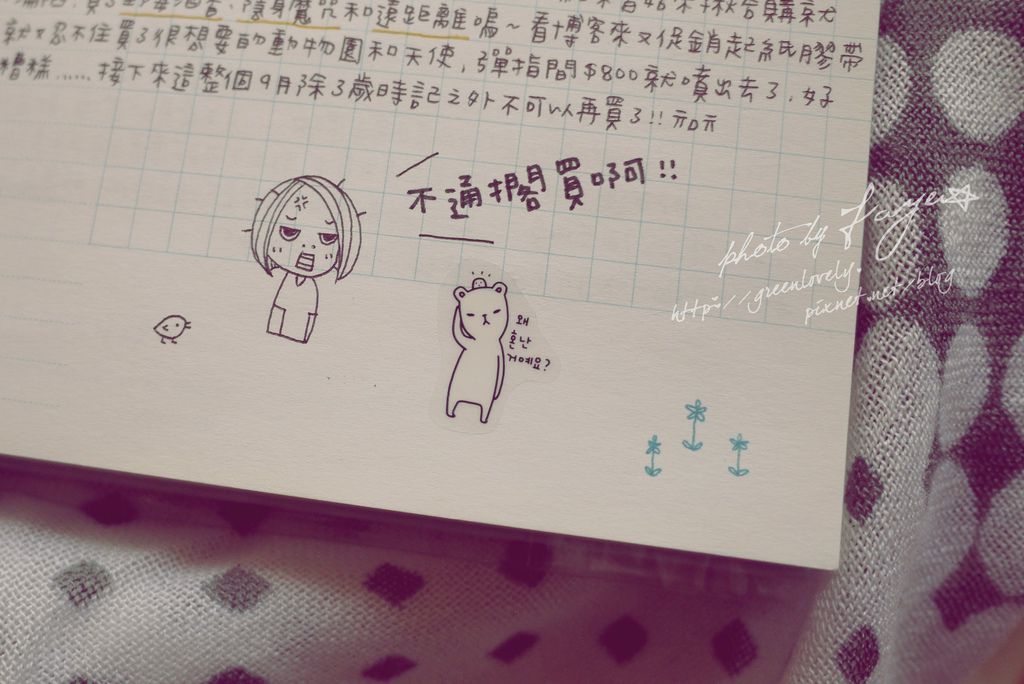 隱身魔咒和遠距離嗚~看博客來又促銷起紙膠帶
就又忍不住買了很想要的動物園和天使,彈指間$800就噴出去了,好
糟糕......接下來這整個9月除了歲時記之外不可以再買了!!
不通擱買啊!!
왜
혼난
거예요?
photo by
http://greenlovely.
pixnet.net/blog